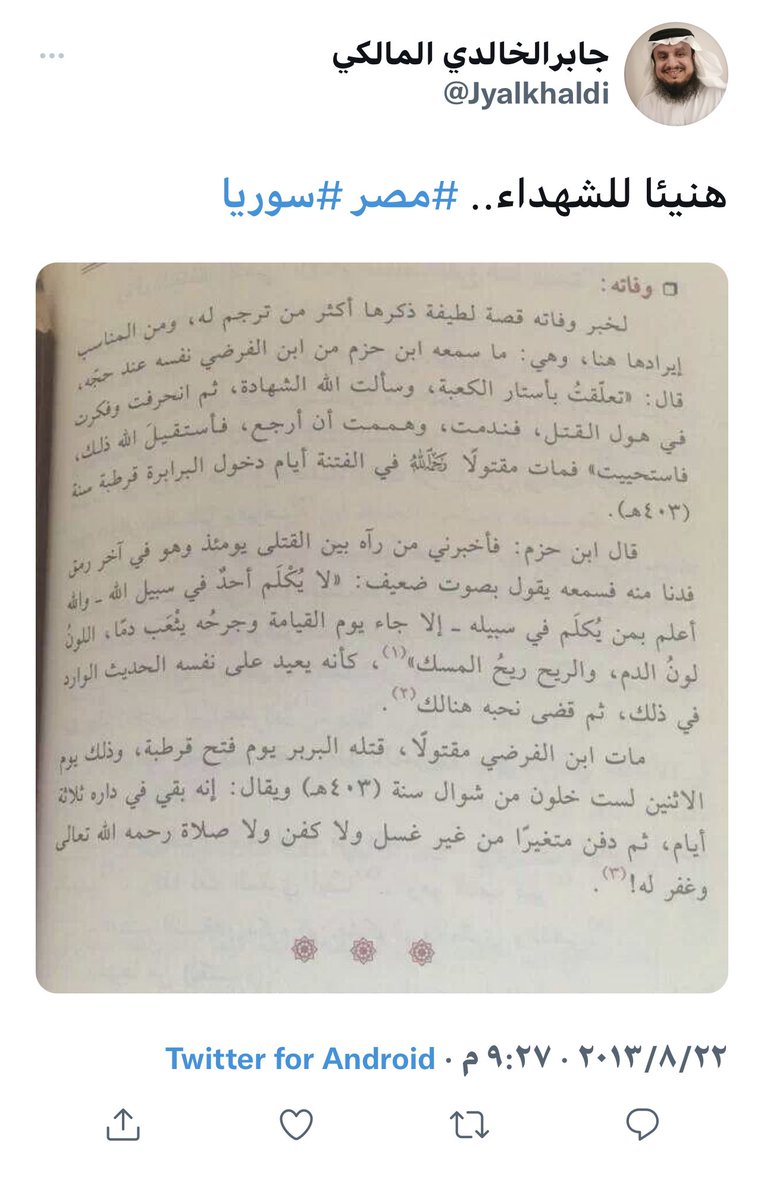 جابرالخالدي المالكي
@Jyalkhaldi
هنيئا للشهداء.. #مصر #سوريا
وفاته:
لخبر وفاته قصة لطيفة ذكرها أكثر من ترجم له، ومن المناسب
إيرادها هنا، وهي: ما سمعه ابن حزم من ابن الفرضي نفسه عند حجّه،
قال: «تعلّقتُ بأستار الكعبة، وسألت الله الشهادة، ثم انحرفت وفكرت
في هول القتل، فندمت، وهممت أن أرجع، فأستقيلَ الله ذلك،
فاستحييت» فمات مقتولًا رَحِمَهُ اللهُ في الفتنة أيام دخول البرابرة قرطبة سنة
(٤٠٣هـ).
قال ابن حزم: فأخبرني من رآه بين القتلى يومئذ وهو في آخر رمق
فدنا منه فسمعه يقول بصوت ضعيف: «لا يُكْلَم أحدٌ في سبيل الله ـ والله
أعلم بمن يُكلَم في سبيله ـ إلا جاء يوم القيامة وجرحُه يثْعَب دمًا، اللونُ
لونُ الدم، والريح ريحُ المسك»(١)، كأنه يعيد على نفسه الحديث الوارد
في ذلك، ثم قضى نحبه هنالك(٢).
مات ابن الفرضي مقتولًا، قتله البربر يوم فتح قرطبة، وذلك يوم
الاثنين لست خلون من شوال سنة (٤٠٣هـ) ويقال: إنه بقي في داره ثلاثة
أيام، ثم دفن متغيرًا من غير غسل ولا كفن ولا صلاة رحمه الله تعالى
وغفر له!(٣).
٢٠١٣/٨/٢٢ · ٩:٢٧ م · Twitter for Android